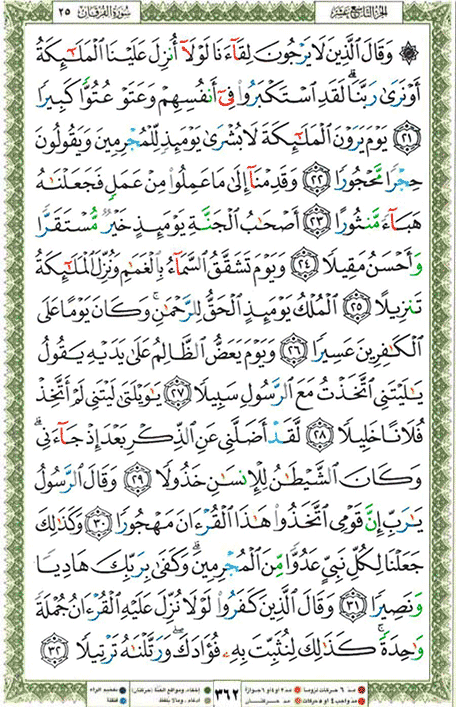 الجزء التاسع عشر
سورة الفرقان ٢٥
۞ وَقَالَ ٱلَّذِينَ لَا يَرْجُونَ لِقَآءَنَا لَوْلَآ أُنزِلَ عَلَيْنَا ٱلْمَلَٰٓئِكَةُ
أَوْ نَرَىٰ رَبَّنَا ۗ لَقَدِ ٱسْتَكْبَرُوا۟ فِىٓ أَنفُسِهِمْ وَعَتَوْ عُتُوًّا كَبِيرًا
٢١ يَوْمَ يَرَوْنَ ٱلْمَلَٰٓئِكَةَ لَا بُشْرَىٰ يَوْمَئِذٍ لِّلْمُجْرِمِينَ وَيَقُولُونَ
حِجْرًا مَّحْجُورًا ٢٢ وَقَدِمْنَآ إِلَىٰ مَا عَمِلُوا۟ مِنْ عَمَلٍ فَجَعَلْنَٰهُ
هَبَآءً مَّنثُورًا ٢٣ أَصْحَٰبُ ٱلْجَنَّةِ يَوْمَئِذٍ خَيْرٌ مُّسْتَقَرًّا
وَأَحْسَنُ مَقِيلًا ٢٤ وَيَوْمَ تَشَقَّقُ ٱلسَّمَآءُ بِٱلْغَمَٰمِ وَنُزِّلَ ٱلْمَلَٰٓئِكَةُ
تَنزِيلًا ٢٥ ٱلْمُلْكُ يَوْمَئِذٍ ٱلْحَقُّ لِلرَّحْمَٰنِ ۚ وَكَانَ يَوْمًا عَلَى
ٱلْكَٰفِرِينَ عَسِيرًا ٢٦ وَيَوْمَ يَعَضُّ ٱلظَّالِمُ عَلَىٰ يَدَيْهِ يَقُولُ
يَٰلَيْتَنِى ٱتَّخَذْتُ مَعَ ٱلرَّسُولِ سَبِيلًا ٢٧ يَٰوَيْلَتَىٰ لَيْتَنِى لَمْ أَتَّخِذْ
فُلَانًا خَلِيلًا ٢٨ لَّقَدْ أَضَلَّنِى عَنِ ٱلذِّكْرِ بَعْدَ إِذْ جَآءَنِى ۗ
وَكَانَ ٱلشَّيْطَٰنُ لِلْإِنسَٰنِ خَذُولًا ٢٩ وَقَالَ ٱلرَّسُولُ
يَٰرَبِّ إِنَّ قَوْمِى ٱتَّخَذُوا۟ هَٰذَا ٱلْقُرْءَانَ مَهْجُورًا ٣٠ وَكَذَٰلِكَ
جَعَلْنَا لِكُلِّ نَبِىٍّ عَدُوًّا مِّنَ ٱلْمُجْرِمِينَ ۗ وَكَفَىٰ بِرَبِّكَ هَادِيًا
وَنَصِيرًا ٣١ وَقَالَ ٱلَّذِينَ كَفَرُوا۟ لَوْلَا نُزِّلَ عَلَيْهِ ٱلْقُرْءَانُ جُمْلَةً
وَٰحِدَةً ۚ كَذَٰلِكَ لِنُثَبِّتَ بِهِۦ فُؤَادَكَ ۖ وَرَتَّلْنَٰهُ تَرْتِيلًا ٣٢
مد ٦ حركات لزوماً مد ٢ أو ٤ أو ٦ جوازاً
مد واجب ٤ أو ٥ حركات مد حركتان
٣٦٢
إخفاء، ومواقع الغنة (حركتان) تفخيم الراء
ادغام، وما لا يلفظ قلقلة